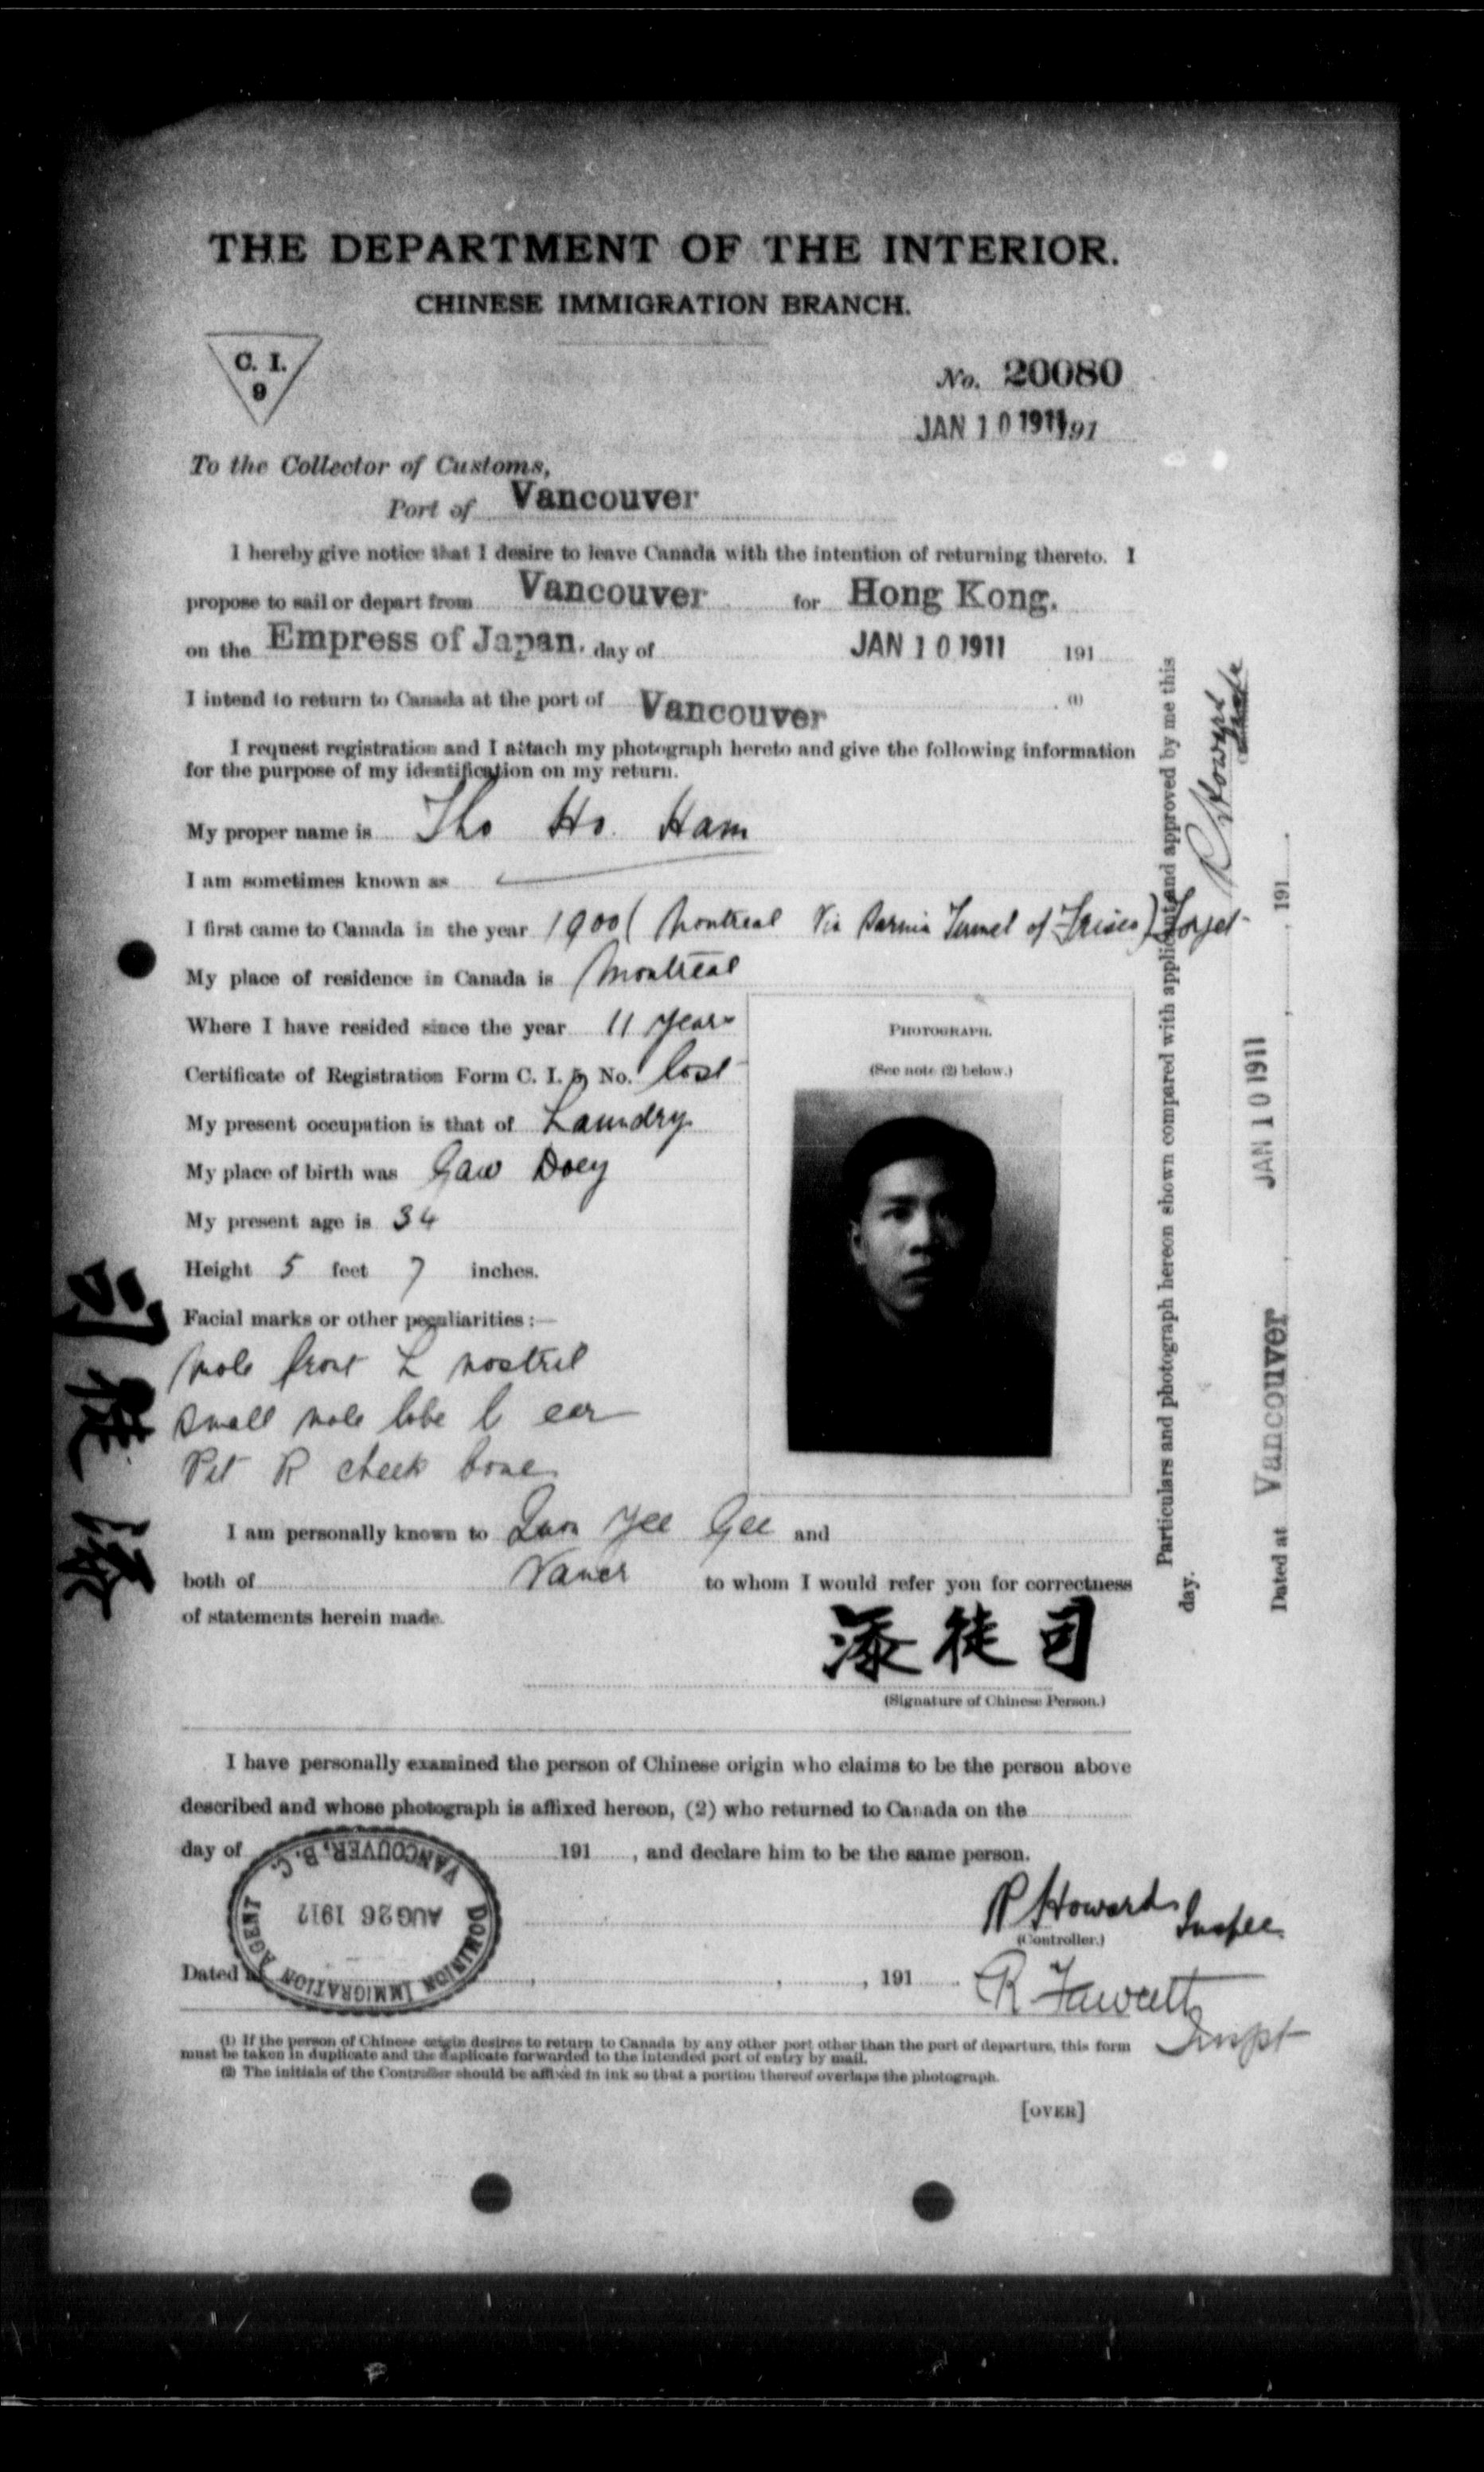 THE DEPARTMENT OF THE INTERIOR.
CHINESE IMMIGRATION BRANCH.
C. I.
9
No. 20080
JAN 10 1911 191
To the Collector of Customs,
Port of Vancouver
I hereby give notice that I desire to leave Canada with the intention of returning thereto. I
propose to sail or depart from Vancouver for Hong Kong.
on the Empress of Japan. day of JAN 10 1911 191
I intend to return to Canada at the port of Vancouver (1)
I request registration and I attach my photograph hereto and give the following information
for the purpose of my identification on my return.
My proper name is Tho Ho Ham
I am sometimes known as
I first came to Canada in the year 1900 (Montreal Via Sarnia Tunnel of Frisco) Forget
My place of residence in Canada is Montreal
Where I have resided since the year 11 years
Certificate of Registration Form C. I. 5 No. lost
My present occupation is that of Laundry
My place of birth was Gaw Doey
My present age is 34
Height 5 feet 7 inches.
Facial marks or other peculiarities :—
Mole front L nostril
Small mole lobe L ear
Pit R cheek bone
PHOTOGRAPH.
(See note (2) below.)
I am personally known to Yee Gee and
both of Vancr to whom I would refer you for correctness
of statements herein made.
添徒司
(Signature of Chinese Person.)
I have personally examined the person of Chinese origin who claims to be the person above
described and whose photograph is affixed hereon, (2) who returned to Canada on the
day of 191 , and declare him to be the same person.
R Howard Inspec
(Controller.)
Dated at , , 191
R Fawcett
Inspt
DOMINION IMMIGRATION AGENT
AUG 26 1912
VANCOUVER, B. C.
(1) If the person of Chinese origin desires to return to Canada by any other port other than the port of departure, this form
must be taken in duplicate and the duplicate forwarded to the intended port of entry by mail.
(2) The initials of the Controller should be affixed in ink so that a portion thereof overlaps the photograph.
[OVER]
司徒添
Particulars and photograph hereon shown compared with applicant and approved by me this
day.
R Howard
Dated at Vancouver , JAN 10 1911 , 191